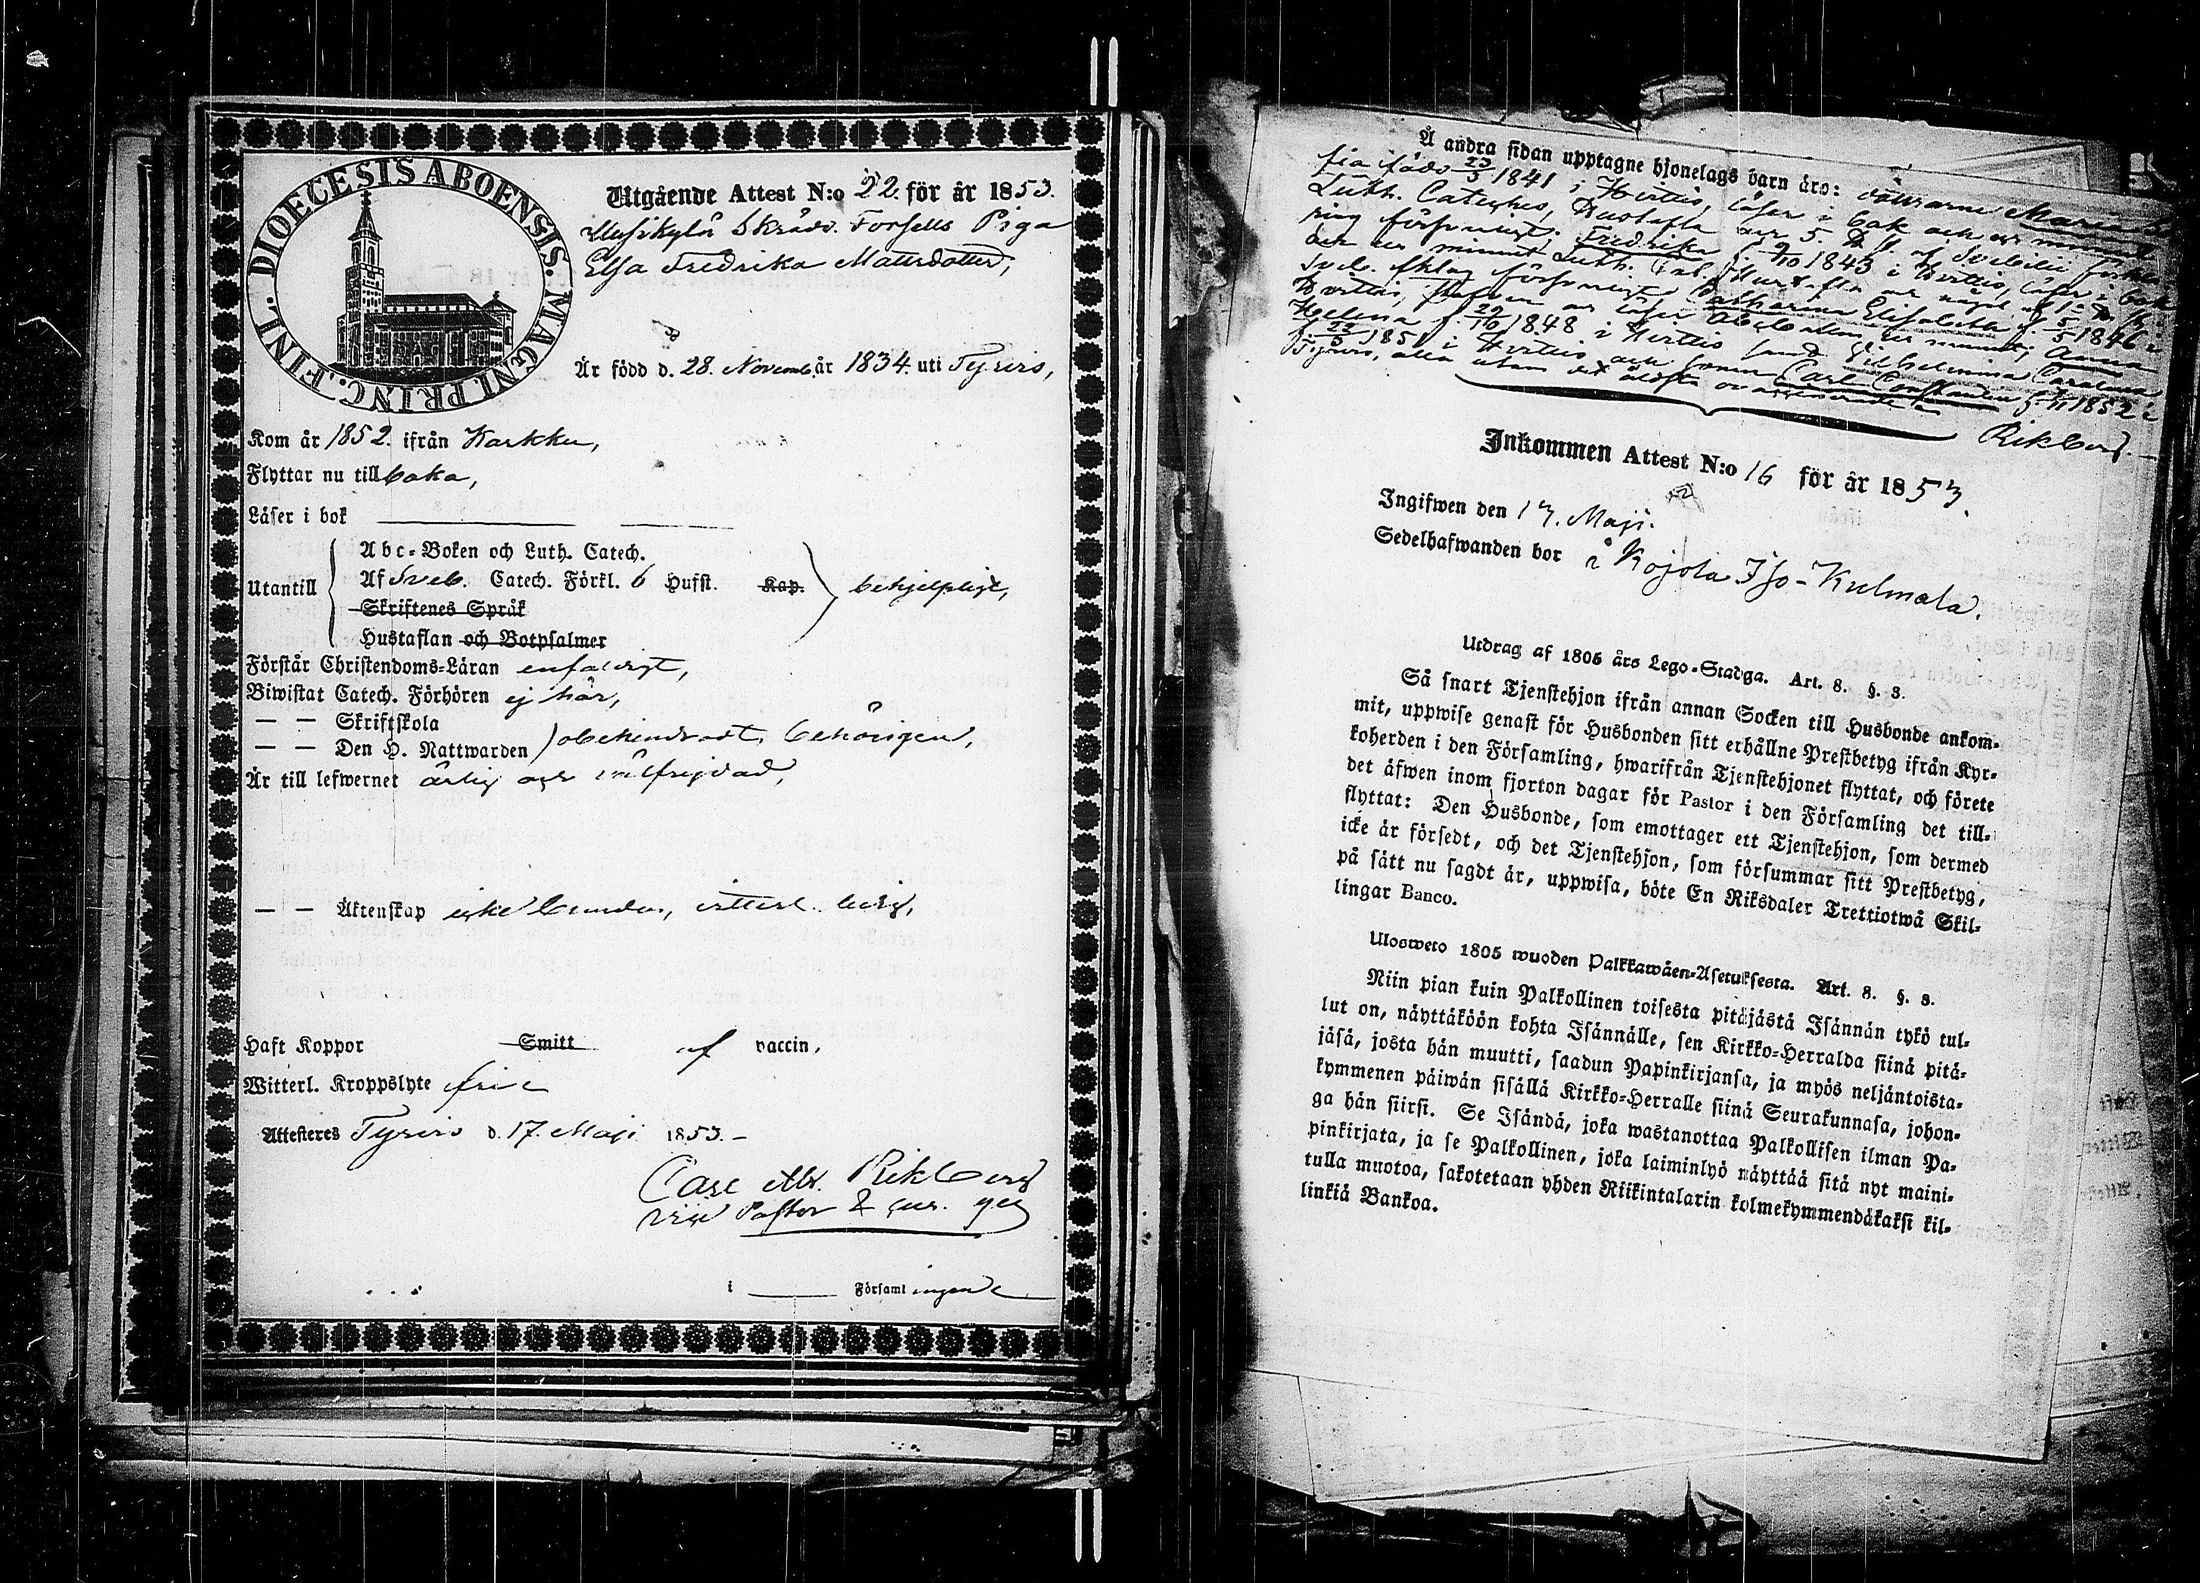 DIOECESIS ABOENSIS. MAGNI PRINC. FINL.
Utgående Attest N:o 22. för år 1853.
Skrädd. Forsells Piga
Elsa Fredrika Mattsdotter,
Är född d. 28. Novemb. år 1834. uti Tyrvis,
Kom år 1852. ifrån Karkku,
Flyttar nu tillbaka,
Läser i bok
Abc-Boken och Luth. Catech.
Utantill Af Sveb. Catech. Förkl. 6 Hufst. Kap. behjelpligt,
Skriftenes Språk
Hustaflan och Botpsalmer
Förstår Christendoms-Läran enfaldigt,
Biwistat Catech. Förhören ej här,
— — Skriftskola
— — Den H. Nattwarden obehindradt, behörigen,
Är till lefwernet ärlig och välfrejdad,
— — Äktenskap icke bunden, vitterl. ledig,
Haft Koppor Smitt af vaccin,
Witterl. Kroppslyte fri
Attesteres Tyrvis d. 17. Maji 1853. —
Carl Rikberg
Pastor
i Församlingen
Å andra sidan upptagne hjonelags barn äro: döttrarne Maria
född 23/3 1841 i Hvittis, läser i bok och ur minnet
Luth. Cateches, Hustafla och 5. af Svebilii förkla-
ring försvarligt. Fredrika f. 2/10 1843 i Hvittis, läser i bok
och ur minnet Luth. Hustafla och något af
Sveb. försvarligt Catharina Elisabeth f. 5/5 1846 i
Hvittis, läser Abcboken ur minnet, Anna
Helena f. 29/10 1848 i Hvittis samt Vilhelmina Carolina
f. 22/3 1851 i Hvittis och sonen Carl Constantin f. 1852 i
Tyrvis, alla utom det äldsta
Rikberg. —
Inkommen Attest N:o 16 för år 1853.
Ingifwen den 17. Maji.
Sedelhafwanden bor å Kojola Iso-Kulmala.
Utdrag af 1805 års Lego-Stadga. Art. 8. §. 8.
Så snart Tjenstehjon ifrån annan Socken till Husbonde ankom-
mit, uppwise genast för Husbonden sitt erhållne Prestbetyg ifrån Kyr-
koherden i den Församling, hwarifrån Tjenstehjonet flyttat, och förete
det äfwen inom fjorton dagar för Pastor i den Församling det till-
flyttat: Den Husbonde, som emottager ett Tjenstehjon, som dermed
icke är försedt, och det Tjenstehjon, som försummar sitt Prestbetyg,
på sätt nu sagdt är, uppwisa, böte En Riksdaler Trettiotwå Skil-
lingar Banco.
Ulosweto 1805 wuoden Palkkawäen-Asetuksesta. Art. 8. §. 8.
Niin pian kuin Palkollinen toisesta pitäjästä Isännän tykö tul-
lut on, näyttäköön kohta Isännälle, sen Kirkko-Herralda siinä pitä-
jäsä, josta hän muutti, saadun Papinkirjansa, ja myös neljäntoista-
kymmenen päiwän sisällä Kirkko-Herralle siinä Seurakunnasa, johon-
ga hän siirsi. Se Isändä, joka wastanottaa Palkollisen ilman Pa-
pinkirjata, ja se Palkollinen, joka laiminlyö näyttää sitä nyt maini-
tulla muotoa, sakotetaan yhden Riikintalarin kolmekymmendäkaksi kil-
linkiä Bankoa.